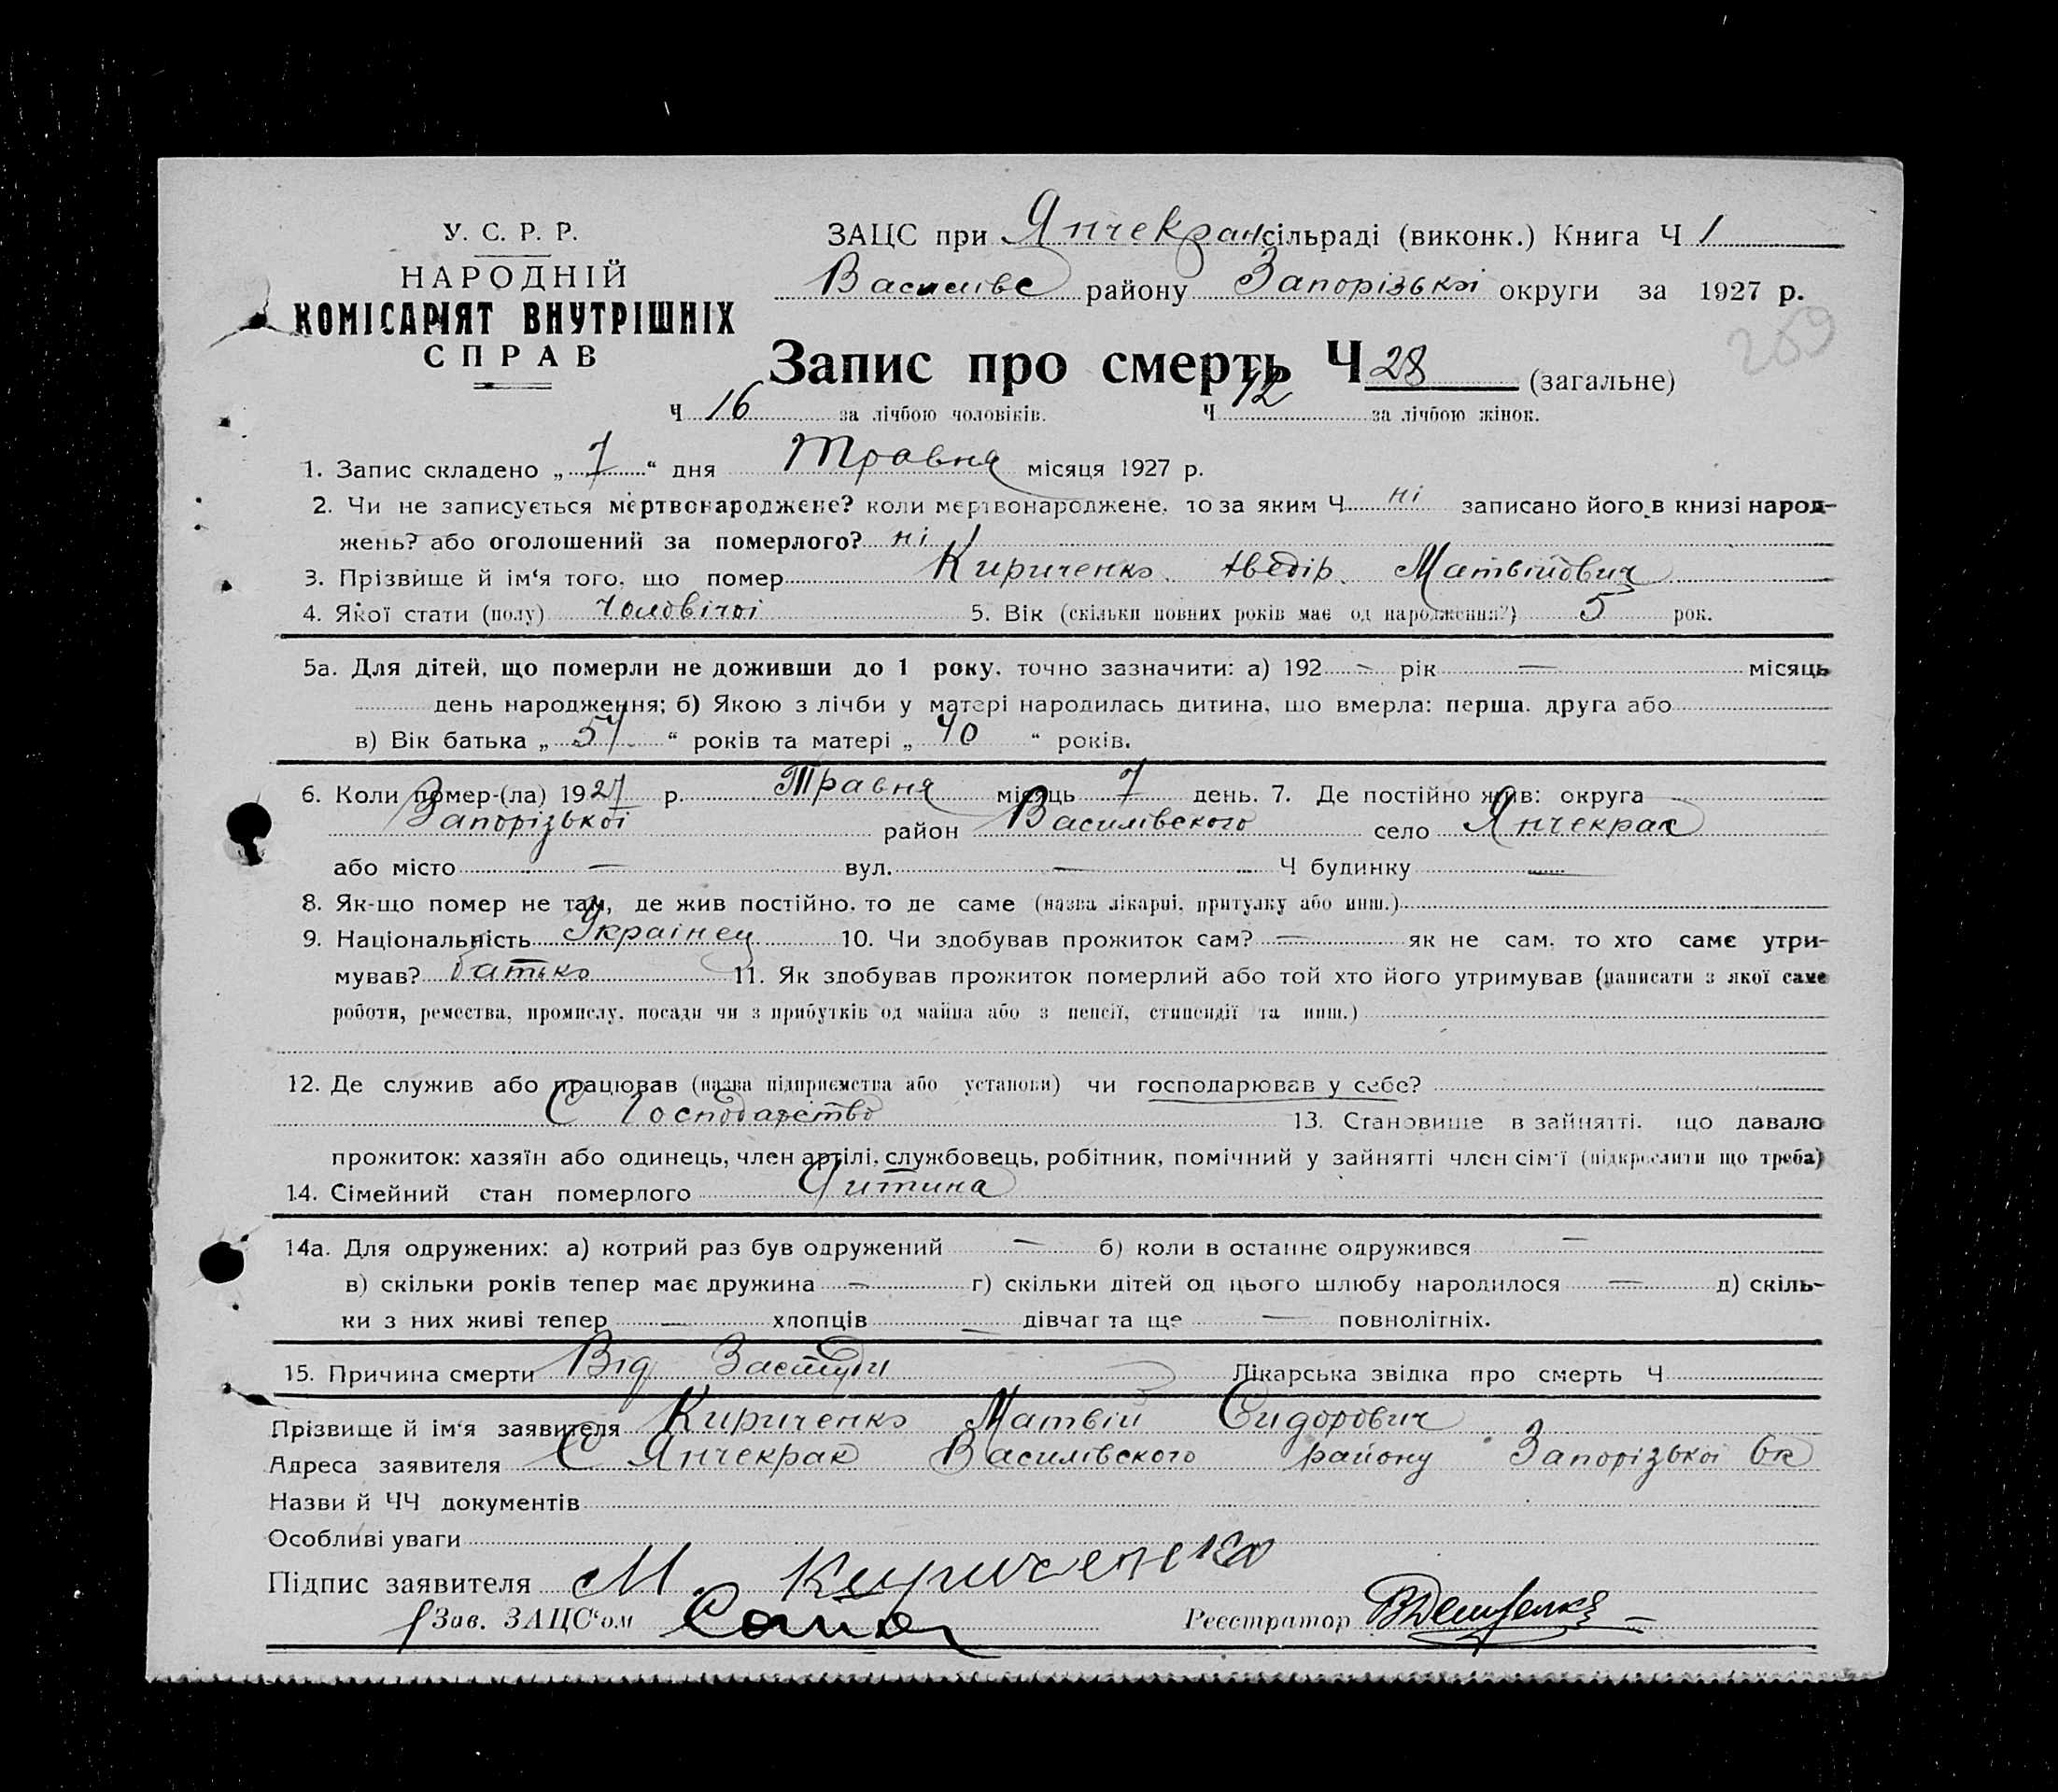 У. С. Р. Р.
НАРОДНІЙ
КОМІСАРІЯТ ВНУТРІШНІХ
СПРАВ
ЗАЦС при Янчекрак сільраді (виконк.) Книга Ч 1
Василівс району Запорізькоі округи за 1927 р.
269
Запис про смерть Ч 28 (загальне)
Ч 16 за лічбою чоловіків. Ч 12 за лічбою жінок.
1. Запис складено „ 7 “ дня Травня місяця 1927 р.
2. Чи не записується мертвонароджене? коли мертвонароджене, то за яким Ч ні записано його в книзі народ-
жень? або оголошений за померлого? ні
3. Прізвище й ім‘я того, що помер Кириченко Матвійович
4. Якої стати (полу) Чоловічоі 5. Вік (скільки повних років має од народження?) 5 рок.
5а. Для дітей, що померли не доживши до 1 року, точно зазначити: а) 192 — рік — місяць
день народження; б) Якою з лічби у матері народилась дитина, що вмерла: перша, друга або
в) Вік батька „ 57 “ років та матері „ 40 “ років.
6. Коли помер-(ла) 1927 р. Травня місяць 7 день. 7. Де постійно жив: округа
Запорізькоі район Василівского село Янчекрак
або місто — вул. — Ч будинку —
8. Як-що помер не там, де жив постійно, то де саме (назва лікарні, притулку або инш.)
9. Національність Украінец 10. Чи здобував прожиток сам? — як не сам, то хто саме утри-
мував? батько 11. Як здобував прожиток померлий або той хто його утримував (написати з якої саме
роботи, ремества, промислу, посади чи з прибутків од майна або з пенсії, стипендії та инш.)
12. Де служив або працював (назва підприємства або установи) чи господарював у себе?
С Господарство 13. Становище в зайнятті, що давало
прожиток: хазяїн або одинець, член артілі, службовець, робітник, помічний у зайнятті член сім‘ї (підкреслити що треба)
14. Сімейний стан померлого Дитина
14а. Для одружених: а) котрий раз був одружений — б) коли в останнє одружився —
в) скільки років тепер має дружина — г) скільки дітей од цього шлюбу народилося — д) скіль-
ки з них живі тепер — хлопців — дівчат та ще — повнолітніх.
15. Причина смерти Від Застуди Лікарська звідка про смерть Ч
Прізвище й ім‘я заявителя Кириченко Матвій Сидорович
Адреса заявителя С Янчекрак Василівского району Запорізькоі Ок
Назви й ЧЧ документів
Особливі уваги
Підпис заявителя М. Кириченко
Зав. ЗАЦС‘ом
Реєстратор